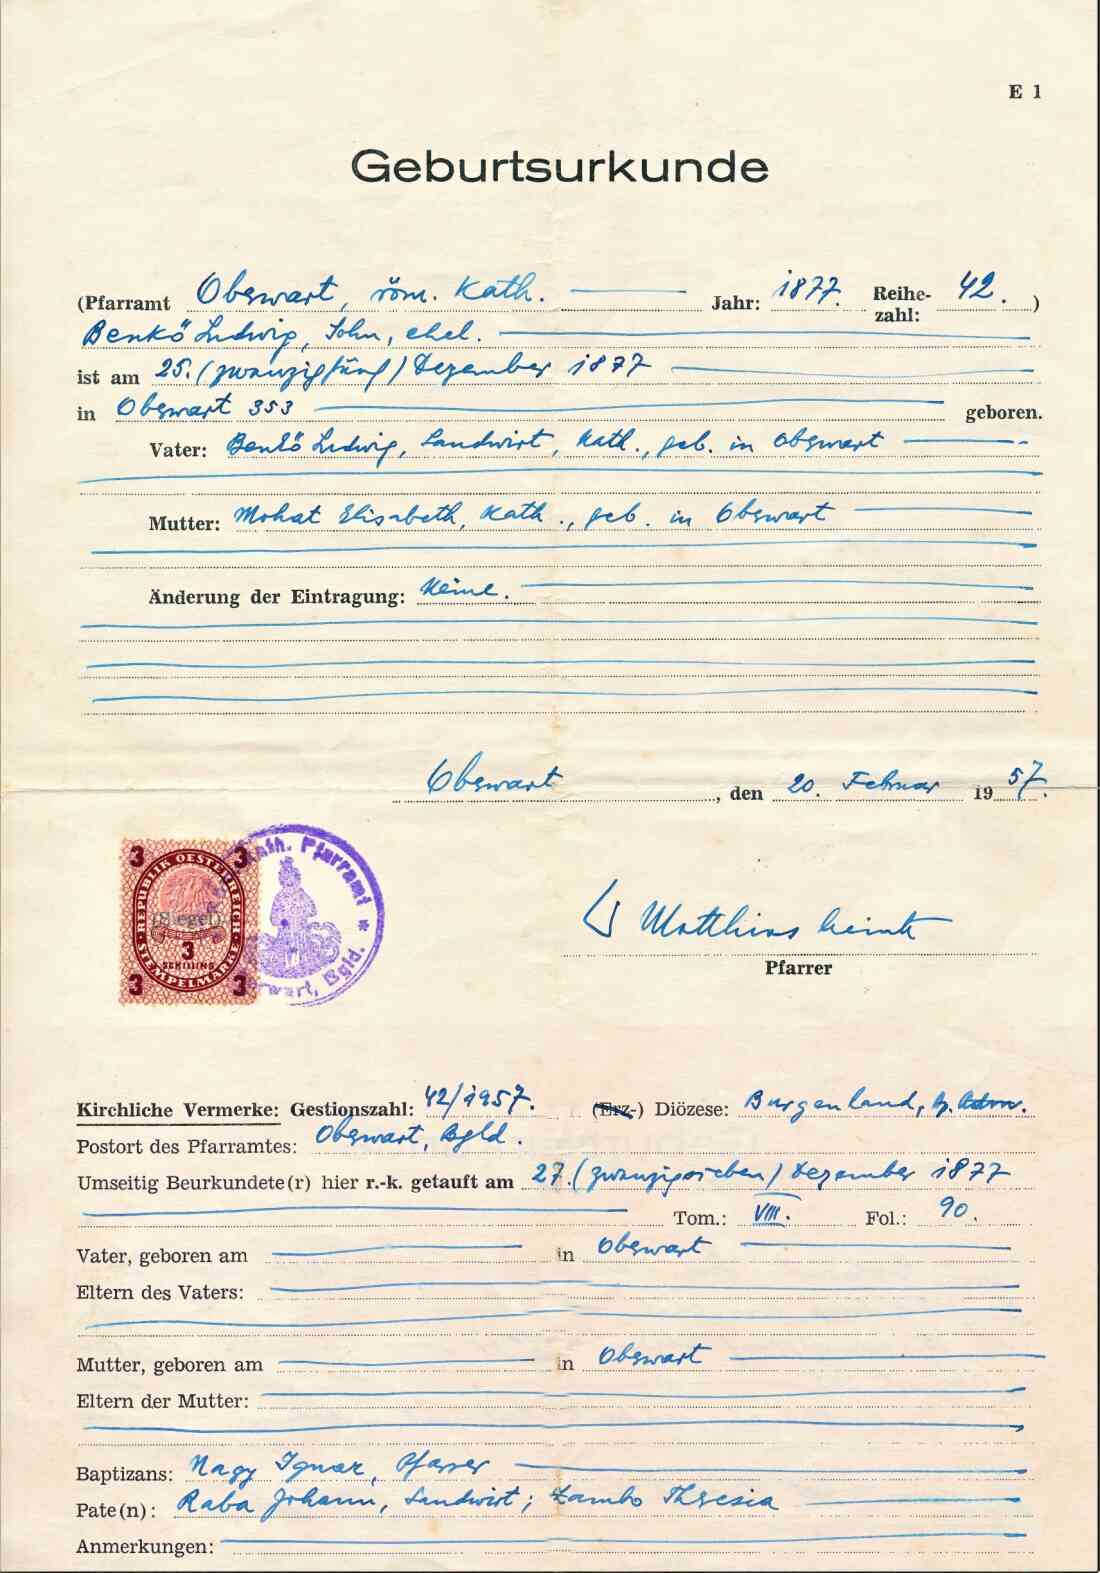 E 1
Geburtsurkunde
(Pfarramt Oberwart, röm. Kath. Jahr: 1877. Reihe-zahl: 42. )
Benkö Ludwig, Sohn, ehel.
ist am 25. (zwanzigfünf) Dezember 1877
in Oberwart 353 geboren.
Vater: Benkö Ludwig, Landwirt, kath., geb. in Oberwart
Mutter: Mohat Elisabeth, kath., geb. in Oberwart
Änderung der Eintragung: Keine.
Oberwart, den 20. Februar 1957.
3 3
REPUBLIK OESTERREICH
(Siegel)
3
SCHILLING
STEMPELMARKE
3 3
Kath. Pfarramt * Oberwart, Bgld.
Matthias
Pfarrer
Kirchliche Vermerke: Gestionszahl: 42/1957. (Erz-) Diözese: Burgenland, Ap. Adm.
Postort des Pfarramtes: Oberwart, Bgld.
Umseitig Beurkundete(r) hier r.-k. getauft am 27. (zwanzigsieben) Dezember 1877
Tom.: VIII. Fol.: 90.
Vater, geboren am in Oberwart
Eltern des Vaters:
Mutter, geboren am in Oberwart
Eltern der Mutter:
Baptizans: Nagy Ignaz, Pfarrer
Pate(n): Raba Johann, Landwirt; Zambo Theresia
Anmerkungen: